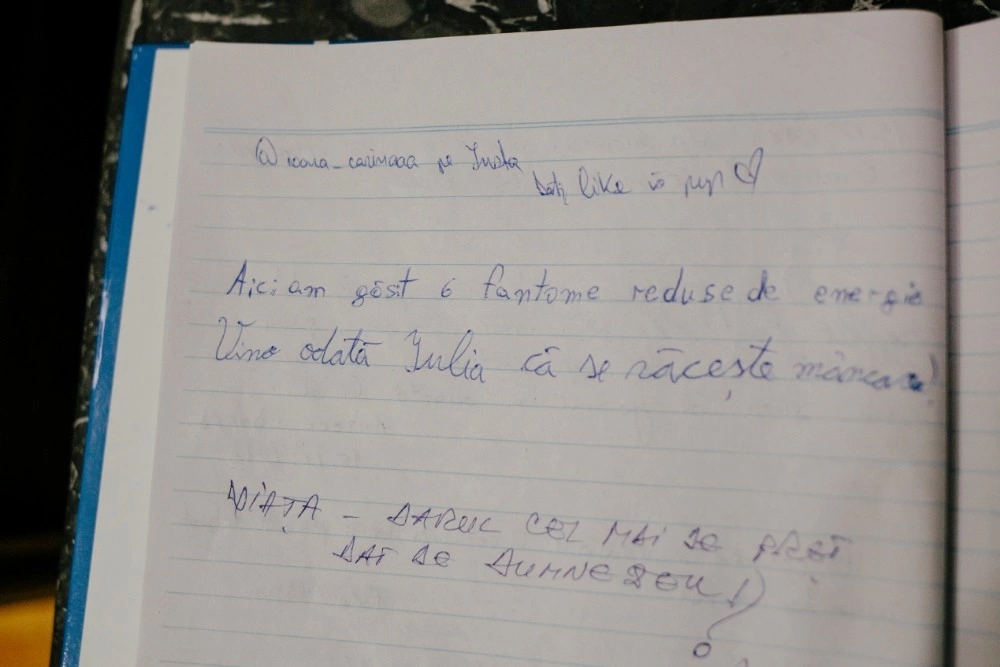 @ioana_carinaaa pe Insta
Dați like și pup
Aici am găsit 6 fantome reduse de energie
Vino odată Iulia că se răcește mâncarea!
VIAȚA - DARUL CEL MAI DE PREȚ
DAT DE DUMNEZEU!